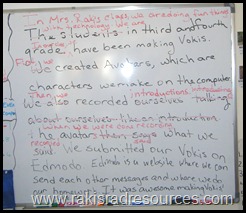 In Mrs. Raki's class, we are doing fun things
with technology. We are
The students in third and fourth
grade have been making Vokis.
First, We created Avatars, which are
characters we make on the computer.
Then, introductions introducing
We also recorded ourselves talking
about ourselves like an introduction
When we were done recording
the avatars says what we
recorded
said. We submitted our Vokis on
Edmodo. Edmodo is a website where we can
send each other messages and where we do
our homework. It was awesome making Vokis!
www.rakisradresources.com